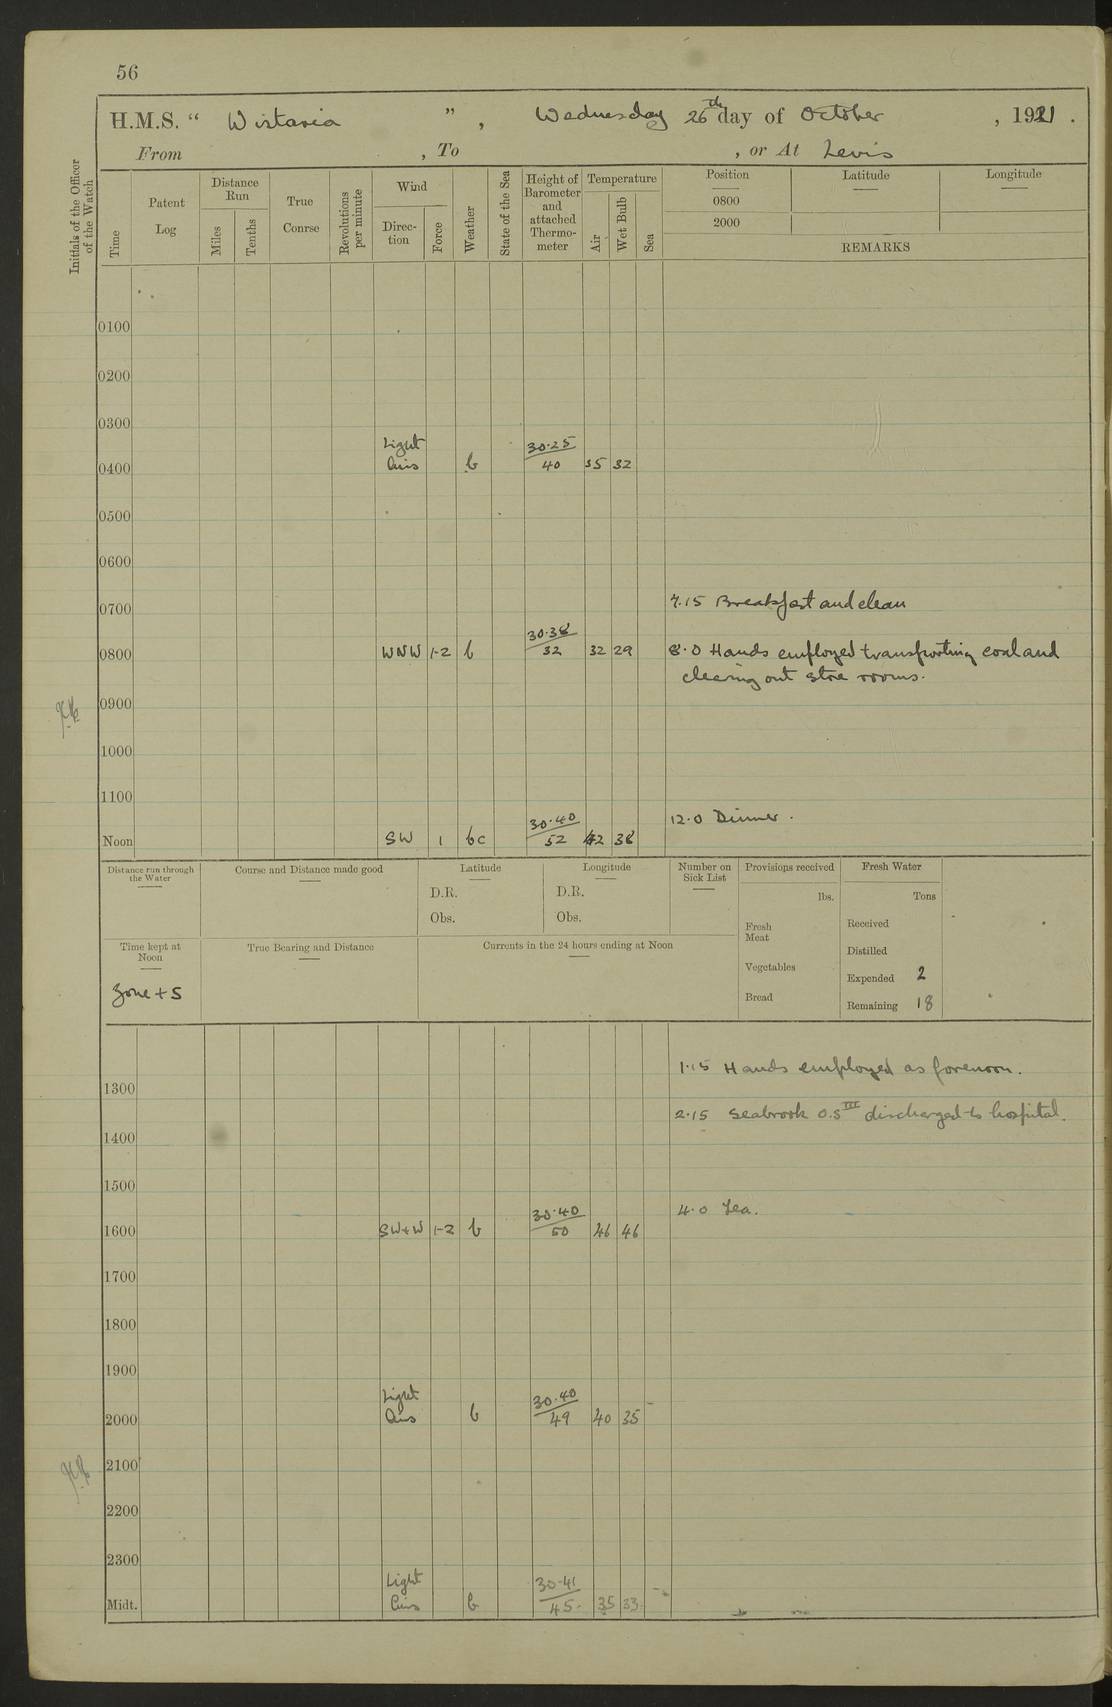 56
H.M.S. “ Wistaria ” , Wednesday 26th day of October , 1921 .
From , To , or At Levis
Initials of the Officer of the Watch
Time
Patent Log
Distance Run
Miles
Tenths
True Conrse
Revolutions per minute
Wind
Direc-tion
Force
Weather
State of the Sea
Height of Barometer and attached Thermo-meter
Temperature
Air
Wet Bulb
Sea
Position
Latitude
Longitude
0800
2000
REMARKS
0100
0200
0300
Light 30·25
0400 Airs b 40 35 32
0500
0600
0700 7.15 Breakfast and clean
30·38
0800 WNW 1-2 b 32 32 29 8·0 Hands employed transporting coal and
clearing out store rooms.
0900
1000
1100
30·40 12·0 Dinner .
Noon SW 1 bc 52 42 38
Distance run through the Water
Course and Distance made good
Latitude
Longitude
D.R.
D.R.
Obs.
Obs.
Number on Sick List
Provisions received
lbs.
Fresh Meat
Vegetables
Bread
Fresh Water
Tons
Received
Distilled
Expended 2
Remaining 18
Time kept at Noon
Zone + 5
True Bearing and Distance
Currents in the 24 hours ending at Noon
1·15 Hands employed as forenoon.
1300
2·15 Seabrook O.S III discharged to hospital.
1400
1500
30·40 4·0 Tea.
1600 SW+W 1-2 b 50 46 46
1700
1800
1900
Light 30·40
2000 Airs b 49 40 35
2100
2200
2300
Light 30·41
Midt. Airs b 45· 35 33